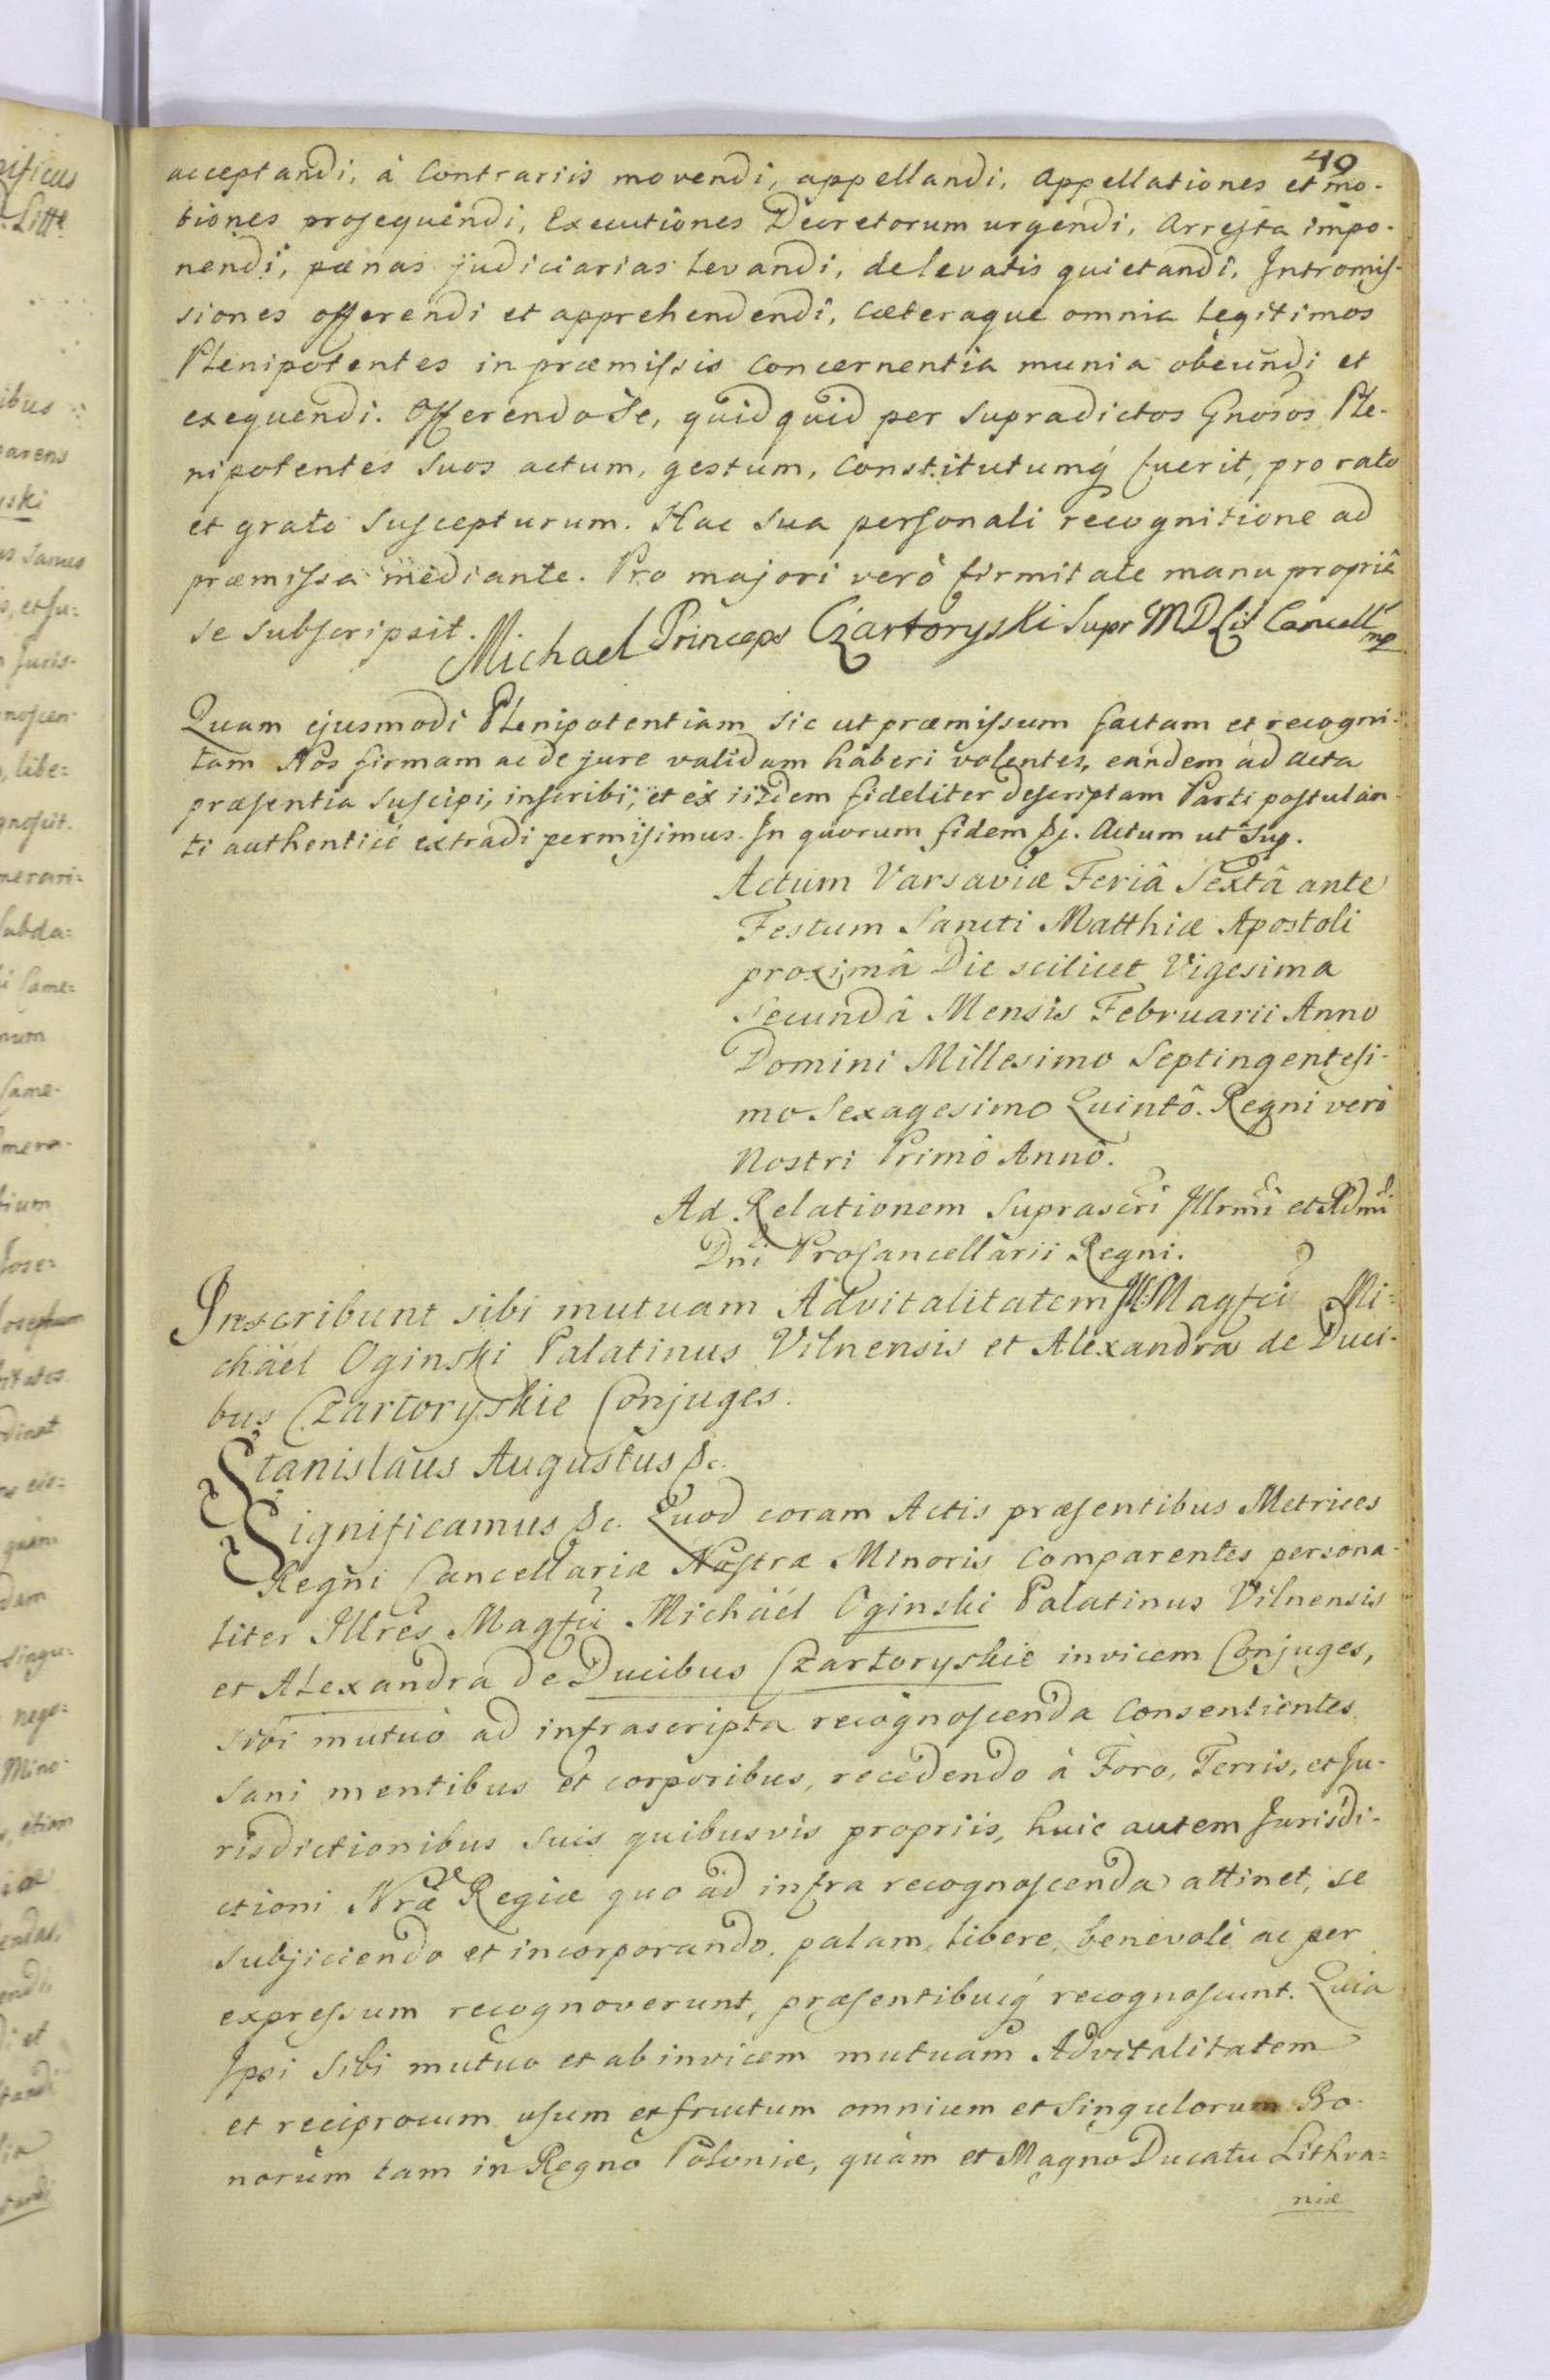 49
acceptandi, à Contrariis movendi, appellandi, Appellationes et mo-
tiones prosequendi, Executiones Decretorum urgendi, Arresta impo-
nendi, pænas judiciarias levandi, de levatis quietandi, Intromis-
siones offerendi et apprehendendi, cæteraque omnia legitimos
Plenipotentes in præmissis concernentia munia obeundi et
exequendi. Offerendo Se, quidquid per supradictos Gnosos Ple-
nipotentes suos actum, gestum, Constitutumq́ fuerit, pro rato
et grato suscepturum. Hac sua personali recognitione ad
præmissa mediante. Pro majori verò firmitate manu propriâ
se subscripsit. Michael Princeps Czartoryski Supr MD Lit Cancell mp
Quam ejusmodi Plenipotentiam sic ut præmissum factam et recogni-
tam Nos firmam ac de jure validam haberi volentes, eandem ad Acta
præsentia suscipi, inscribi, et ex iisdem fideliter descriptam Parti postulan-
ti authenticè extradi permisimus. In quorum fidem &c. Actum ut Sup.
Actum Varsaviæ Feriâ Sextâ ante
Festum Sancti Matthiæ Apostoli
proximâ Die scilicet Vigesima
Secundâ Mensis Februarii Anno
Domini Millesimo Septingentesi-
mo Sexagesimo Quintô. Regni verò
Nostri Primô Annô.
Ad Relationem suprascri Illrmi et Rdmi
Dni ProCancellarii Regni.
Inscribunt sibi mutuam Advitalitatem Ill Magfci Mi-
chaël Oginski Palatinus Vilnensis et Alexandra de Duci-
bus Czartoryskie Conjuges.
Stanislaus Augustus &c.
Significamus &c. Quod coram Actis præsentibus Metrices
Regni Cancellariæ Nostræ Minoris comparentes persona-
liter Illres Magfci Michaël Oginski Palatinus Vilnensis
et Alexandra de Ducibus Czartoryskie invicem Conjuges,
sibi mutuò ad infrascripta recognoscenda Consentientes
sani mentibus et corporibus, recedendo à Foro, Terris, et Ju-
risdictionibus suis quibusvis propriis, huic autem Jurisdi-
ctioni Nræ Regiæ quo ad infra recognoscenda attinet, se
subjiciendo et incorporando, palam, libere, benevolè ac per
expressum recognoverunt, præsentibusq́ recognoscunt. Quia
Ipsi Sibi mutuo et ab invicem mutuam Advitalitatem
et reciprocum usum et fructum omnium et Singulorum Bo-
norum tam in Regno Poloniæ, quàm et Magno Ducatu Lithva-
niæ